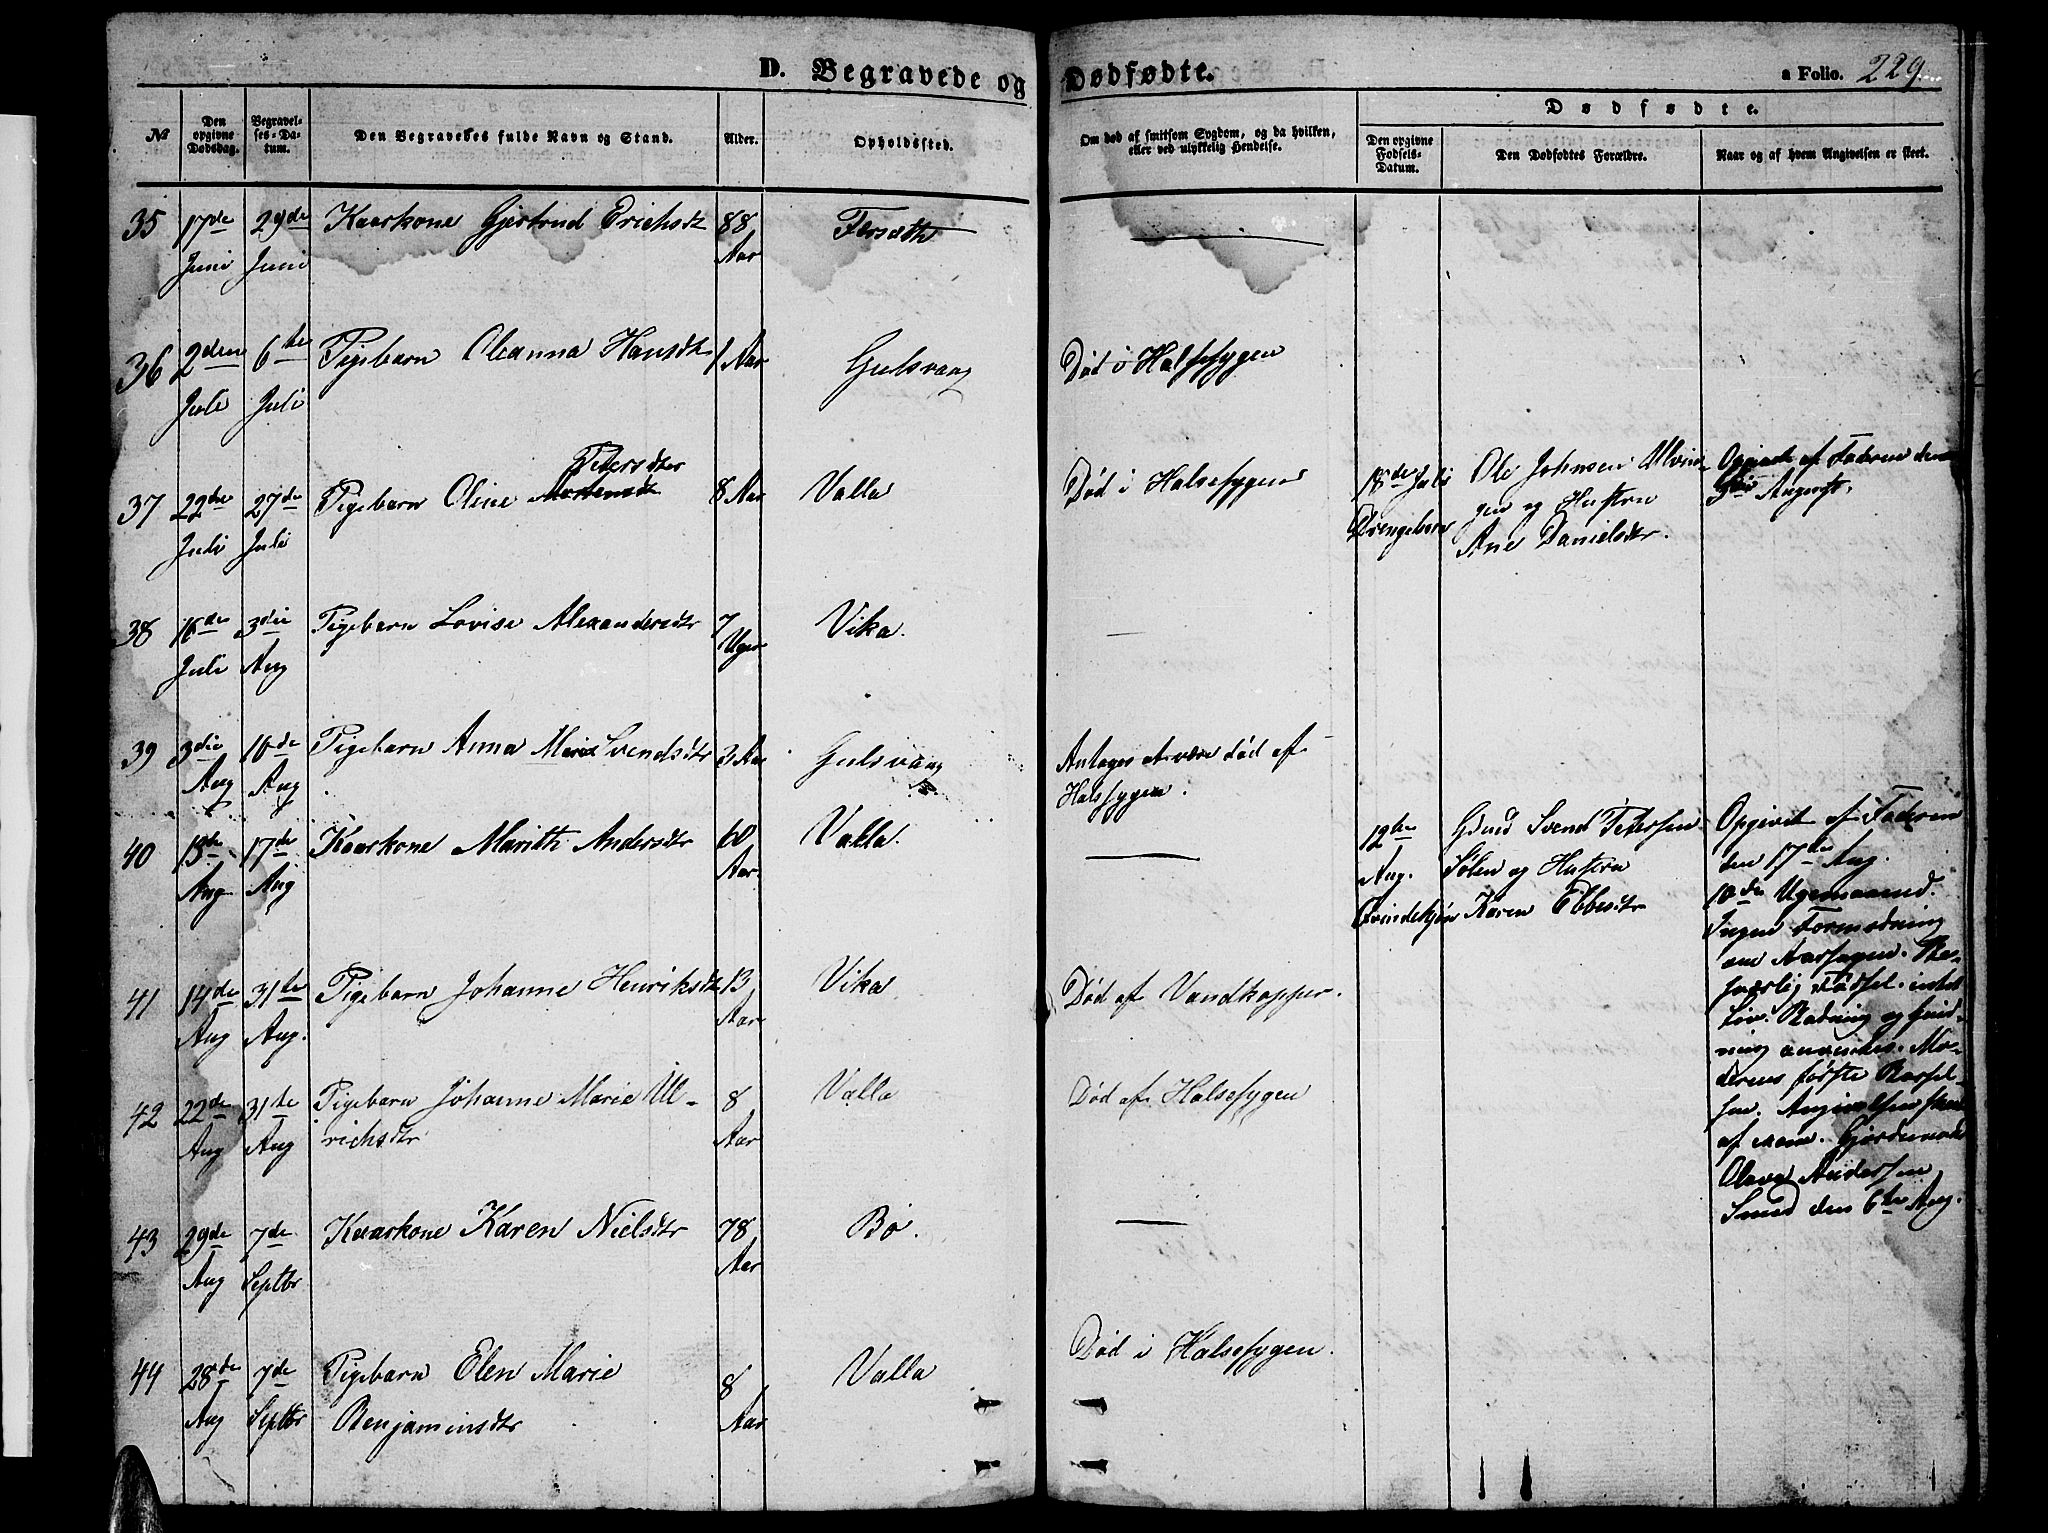 D. Begravede og Dødfødte.
a Folio. 229
№
Den opgivne Dødsdag.
Begravelses-Datum.
Den Begravedes fulde Navn og Stand.
Alder.
Opholdssted.
Om død af smitsom Sygdom, og da hvilken,
eller ved ulykkelig Hendelse.
Dødfødte.
Den opgivne Fødsels-Datum.
Den Dødfødtes Forældre.
Naar og af hvem Angivelsen er skeet.
35 17de 29de Kaarkone Gjertrud Erichsdt 88 Forsæth
Juni Juni Aar
36 2den 6te Pigebarn Oleanna Hansdtr 1 Aar Gulsvaag Død i Halssygen
Juli Juli
Petersdter
37 22de 27de Pigebarn Oline Mortensdt 8 Aar Valla Død i Halssygen
Juli Juli
18de Juli
Drengebarn
Ole Johnsen Ulvin-
gen og Hustru
Ane Danielsdtr.
Opgivet af Faderen den
August.
38 16de 3die Pigebarn Lovise Alexandersdtr 7 Vika.
Juli Aug Uger
39 3die 10de Pigebarn Anna Maria Svendsdtr 3 Aar Gulsvaag Antages at være død af
Aug Aug Halssygen.
40 15de 17de Kaarkone Marith Andersdtr 60 Valla.
Aug Aug Aar
12te
Aug.
Qvindekjøn
Gdmd Svend Petersen
Sølen og Hustru
Karen Ebbesdtr
Opgivet af Faderen
den 17de Aug.
10de Ugemaaned.
Ingen Formodning
om Aarsagen. Be-
sværlig Fødsel. intet
Liv. Badning og Gnid-
ning anvendtes. Mo-
derens første Barsel-
sen. Angivelsen skeet
af exam. Gjordemoder
Andersen
den 6te Aug.
41 14de 31te Pigebarn Johanne Henriksdt 13 Vika Død af Vandkopper.
Aug Aug. Aar
42 22de 31te Pigebarn Johanne Marie Ul- 8 Valla Død af Halssygen
Aug Aug richsdtr Aar
43 29de 7de Kaarkone Karen Nielsdtr 78 Bø.
Aug Septbr Aar
44 28de 7de Pigebarn Elen Marie 8 Valla Død i Halssygen.
Aug Septbr Benjaminsdtr Aar